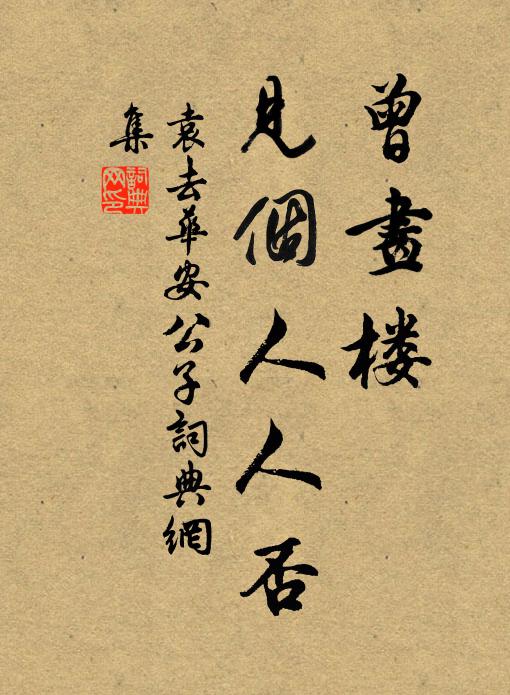 曾畫楼
見個人人否
袁去華安公子詞典網
集
詞典
网印